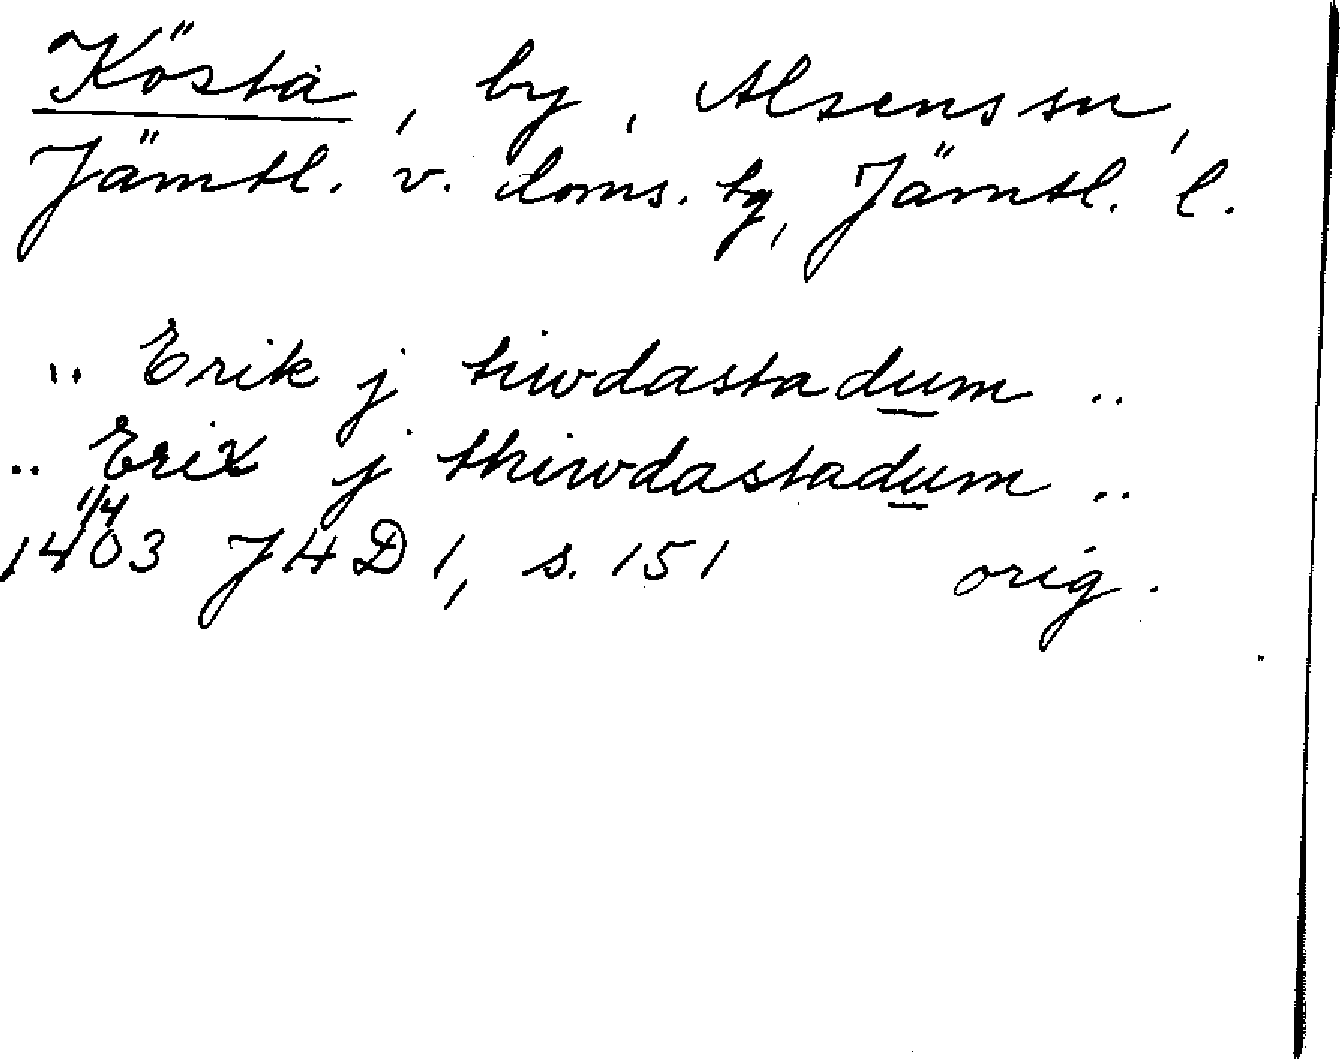 Kösta, by, Alsens sn,
Jämtl. v. doms. tg, Jämtl. l.
.. Erik j tiwdastadum ..
.. Erix j thiwdastadum ..
1/4
1403 JHD 1, s. 151 orig.